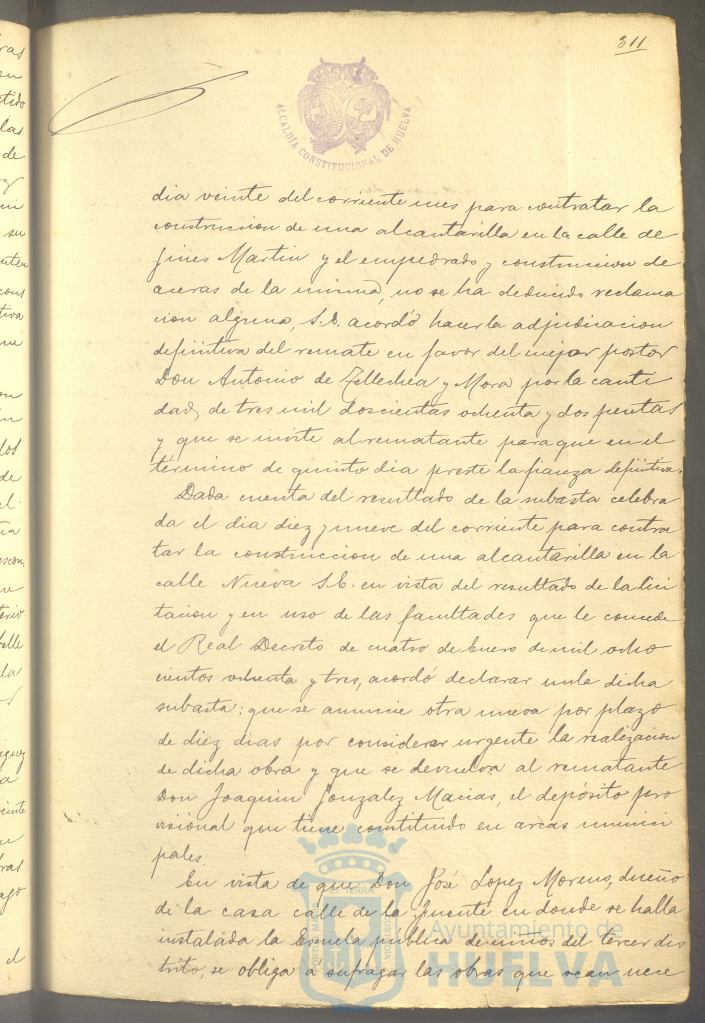 311
ALCALDÍA CONSTITUCIONAL DE HUELVA
dia veinte del corriente mes para contratar la
construccion de una alcantarilla en la calle de
Jines Martin y el empedrado y construccion de
aceras de la misma, no se ha deducido reclama
cion alguna, S.E. acordó hacer la adjudicacion
definitiva del remate en favor del mejor postor
Don Antonio de Zellechea y Mora por la canti
dad, de tres mil doscientas ochenta y dos pesetas
y que se invite al rematante para que en el
término de quinto dia preste la fianza definitiva.
Dada cuenta del resultado de la subasta celebra
da el dia diez y nueve del corriente para contra
tar la construccion de una alcantarilla en la
calle Nueva S.E. en vista del resultado de la lici
tacion y en uso de las facultades que le concede
el Real Decreto de cuatro de Enero de mil ocho
cientos ochenta y tres, acordó declarar nula dicha
subasta: que se anuncie otra nueva por plazo
de diez dias por considerar urgente la realizacion
de dicha obra y que se devuelva al rematante
Don Joaquin Gonzalez Macias, el depósito pro
visional que tiene constituido en arcas munici
pales.
En vista de que Don José Lopez Moreno, dueño
de la casa calle de la Fuente en donde se halla
instalada la Escuela pública de niños del tercer dis
trito, se obliga á sufragar las obras que sean nece
Ayuntamiento de
HUELVA